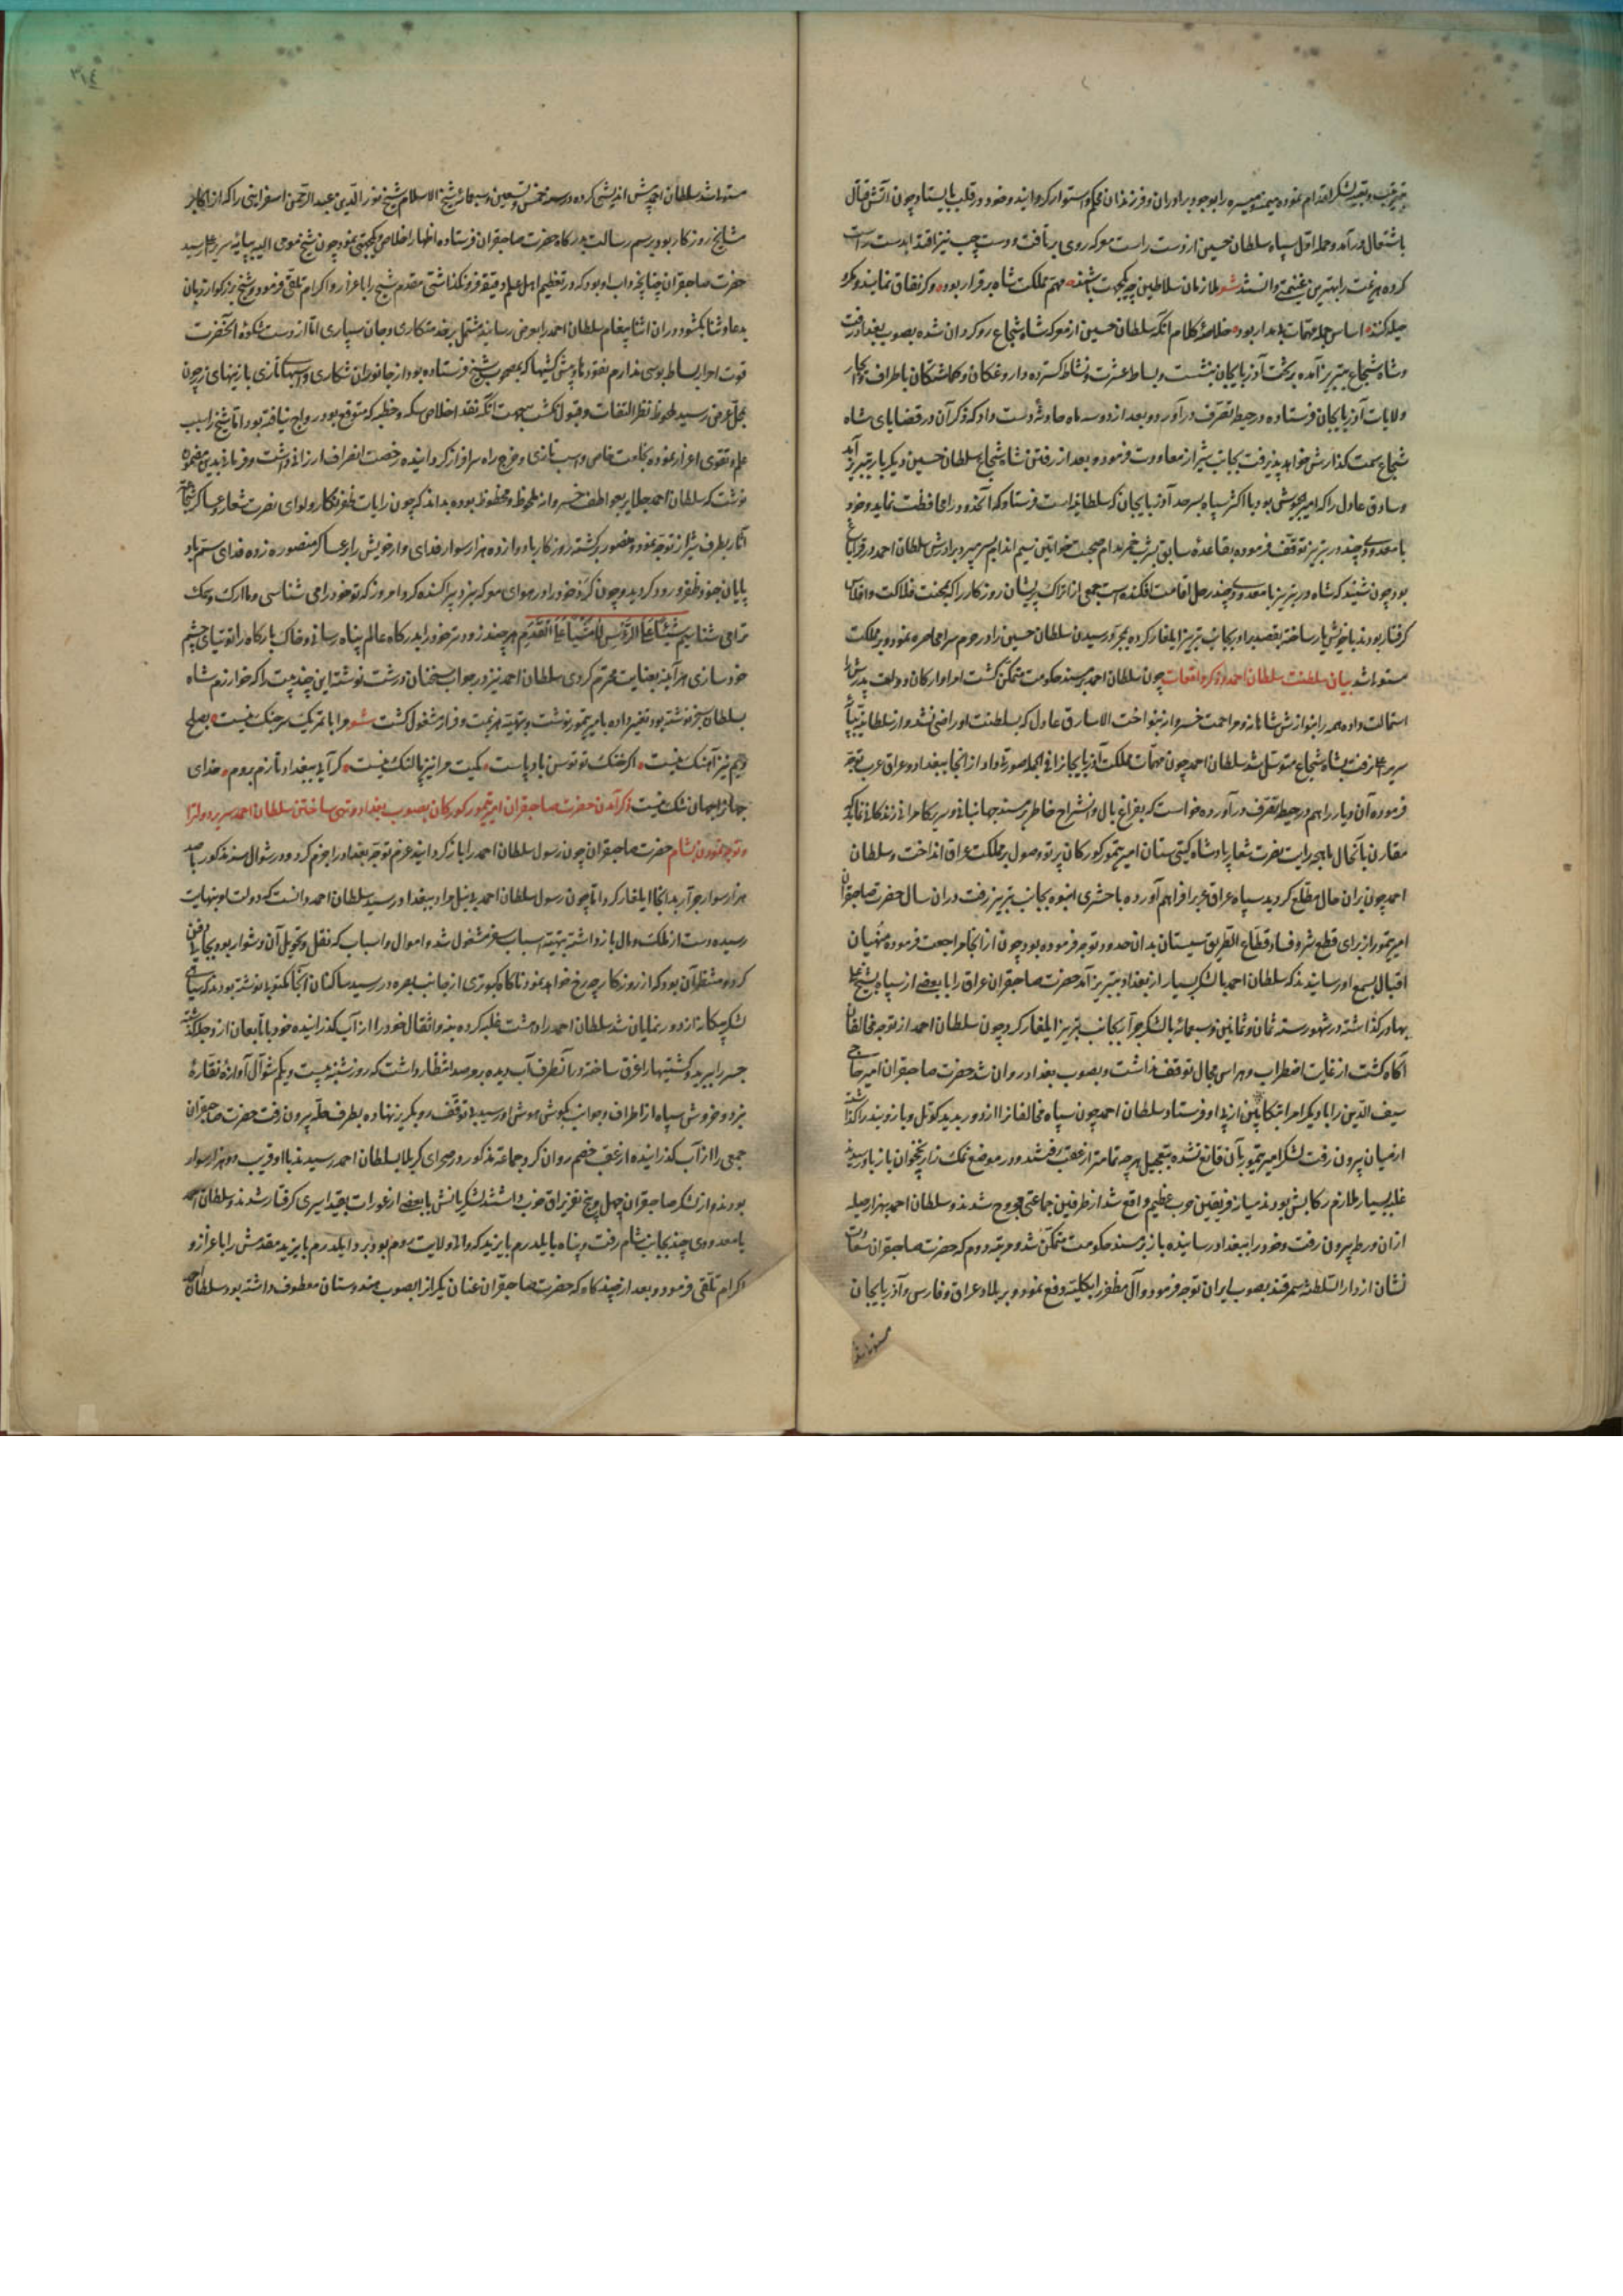 باشتعال درآمد و حمله اول سپاه سلطان حسین از دست راست معرکه روی برتافت و دست چپ نیز اقتدا بدست راست
کرده هزیمت را بهترین غنیمتی دانستند شعر ملازمان سلاطین چو یکجهت باشند مهم مملکت شاه برقرار بود وکر نفاق نمایند و مکر
حیله کنند اساس جمله مهمات بر مدار بود خلاصه کلام آنکه سلطان حسین از معرکه شاه شجاع روکردان شده بصوب بغداد رفت
و شاه شجاع بتبریز آمده بر تخت آذربایجان بنشست و بساط عشرت و نشاط کسترده داروغکان و کماشتکان باطراف و انحاء
ولایات آذربایجان فرستاده در حیطه تصرف درآورد و بعد از دو سه ماه حادثه دست داد که ذکر آن در قضایای شاه
شجاع سمت کذارش خواهد پذیرفت بجانب شیراز معاودت فرمود و بعد از رفتن شاه شجاع سلطان حسین دیکر بار بتبریز آمد
و سارق عادل را که امیر جیوش بود با اکثر سپاه بسرحد آذربایجان که سلطانیه است فرستاد که آنحدود را محافظت نماید و خود
با معدودی چند در تبریز توقف فرموده بقاعده سابق بشرب خمر مدام صحبت خواتین سیم اندام بسر میبرد برادرش سلطان احمد در قراباغ
بود چون شنید که شاه در تبریز با معدودی چند رحل اقامت افکنده است جمعی از اتراک پریشان روزکار را که بمحنت فلاکت و افلاس
کرفتار بودند با خویش یار ساخته بقصد برادر بجانب تبریز ایلغار کرده بمجرد رسیدن سلطان حسین را در حرم سرای محاصره نمود و بر مملکت
مستولی شد بیان سلطنت سلطان احمد و ذکر واقعات چون سلطان احمد بر مسند حکومت متمکن کشت امرا و ارکان دولت پدرش را
استمالت داده همه را بنوازش شاهانه و مراحمت خسروانه بنواخت الا سارق عادل که بسلطنت او راضی نشد و از سلطانیه
سریر رفت بشاه شجاع متوسل شد سلطان احمد چون مهمات مملکت آذربایجان را فی الجمله صورتی داد از آنجا ببغداد و عراق عرب توجه
فرموده آن دیار را هم در حیطه تصرف درآورده خواست که بفراغ بال و انشراح خاطر بر مسند جهانبانی و سریر کامرانی زندکانی نماید که
مقارن باآنحال ماهچه رایت نصرت شعار پادشاه کیتی ستان امیر تیمور کورکان پرتو وصول بر مملکت عراق انداخت و سلطان
احمد چون بران حال مطلع کردید سپاه عراق عرب را فراهم آورده با حشری انبوه بجانب تبریز رفت دران سال حضرت صاحبقران
امیر تیمور از برای قطع شر و فساد قطاع الطریق سیستان بدان حدود توجه فرموده بود چون از آنجا مراجعت فرموده منهیان
اقبال بسمع او رسانیدند که سلطان احمد با لشکر بسیار از بغداد بتبریز آمد حضرت صاحبقران عراق را با بعضی از سپاه بشیخ علی
بهادر کذاشته در شهور سنه ثمان و ثمانین و سبعمائه با لشکر جرار بجانب تبریز ایلغار کرد و چون سلطان احمد از توجه مخالفان
آکاه کشت از غایت اضطراب و هراس مجال توقف نداشت و بصوب بغداد روان شد حضرت صاحبقران امیر حاجی
سیف الدین را با دیکر امرا بتکامیشی از پی او فرستاد سلطان احمد چون سپاه مخالفان را از دور بدید کوتل و باز و بند را کذاشته
از میان بیرون رفت لشکر امیر تیمور بآن قانع نشده بتعجیل هرچه تمامتر از عقب رفتند و در موضع نمک زار نخجوان باز باو رسیدند
غلبه بسیار ملازم رکابش بودند میان فریقین حرب عظیم واقع شد از طرفین جماعتی مجروح شدند و سلطان احمد بهزار حیله
ازان ورطه بیرون رفت و خود را ببغداد رسانیده باز بر مسند حکومت متمکن شد و مرتبه دوم که حضرت صاحبقران سعادت
نشان از دار السلطنه سمرقند بصوب ایران توجه فرمود و آل مظفر را بکلیه دفع نمود و بر بلاد عراق و فارس و آذربایجان
مستولی شد
٣١٤
مستولی شد سلطان احمد پیش اندیشی کرده در سنه خمس و تسعین و سبعمائه شیخ الاسلام شیخ نور الدین عبد الرحمن اسفراینی را که از اکابر
مشایخ روزکار بود برسم رسالت بدرکاه حضرت صاحبقران فرستاده اظهار اخلاص و یکجهتی نمود چون شیخ مومی الیه بپایه سریر اعلی رسید
حضرت صاحبقران چنانچه داب او بود که در تعظیم اهل علم دقیقه فرو نکذاشتی مقدم شیخ را باعزاز و اکرام تلقی فرمود و شیخ بزرکوار زبان
بدعا و ثنا بکشود و دران اثنا پیغام سلطان احمد را بعرض رسانید مشتمل بر خدمتکاری و جان سپاری اما از دست شکوه آنحضرت
قوت احراز بساط بوسی ندارم تقوز و پیش کشیها که بمصحوب شیخ فرستاده بود از جانوران شکاری و اسبهای تازی با زینهای زر چون
بمحل عرض رسید ملحوظ نظر التفات و قبول نکشت بجهت آنکه نقد اخلاص سکه و خطبه که متوقع بود رواج نیافته بود اما شیخ را بسبب
علم و تقوی اعزاز نموده بخلعت خاص و اسب تازی و خرج راه سرافراز کردانیده رخصت انصراف ارزانی داشت و فرمان بدین مضمون
نوشت که سلطان احمد جلایر بعواطف خسروانه ملحوظ و محظوظ بوده بداند که چون رایات ظفر نکار و لوای نصرت شعار عساکر
آثار بطرف شیراز توجه نمود و منصور برکشته روزکار با دوازده هزار سوار فدای وار خویش را بر عساکر منصوره زده فدای ستم باد
پایان جنود ظفر ورود کردید و چون کرد خود را در هوای معرکه نبرد پراکنده کرد امروز که تو خود را می شناسی و ما ارک و سک
ترا می شناسیم هر چند زودتر خود را بدرکاه عالم پناه رسانی و خاک بارکاه را توتیای چشم
خود سازی هر آینه بعنایت محترم کردی سلطان احمد نیز در جواب سخنان درشت نوشته این چند بیت را که خوارزم شاه
بسلطان سنجر نوشته بود تغییر داده بامیر تیمور نوشت و بتهیه هزیمت و فرار مشغول کشت شعر مرا با تمر یک سر جنک نیست بصلح
ویم نیز آهنک نیست اکر خنک تو توسن بادپاست کمیت مرا نیز پا لنک نیست کر آید ببغداد تا رزم بروم خدای
جهانرا جهان تنک نیست ذکر آمدن حضرت صاحبقران امیر تیمور کورکان بصوب بغداد و تهی ساختن سلطان احمد سریر دولت را
و توجه نمودن بشام حضرت صاحبقران چون رسول سلطان احمد را باز کردانید عزم توجه بغداد را جزم کرد و در شوال سنه مذکور با صد
هزار سوار جرار بدانجا ایلغار کرد اما چون رسول سلطان احمد بی نیل مراد ببغداد رسید سلطان احمد دانست که دولت او بنهایت
رسیده دست از ملک و مال باز داشته بتهیه اسباب سفر مشغول شد و اموال و اسباب که نقل و تحویل آن دشوار بود بجایها دفن
کرد و منتظر آن بود که از روزکار چه رخ خواهد نمود ناکاه کبوتری از جانب بهره در رسید ساکنان آنجا مکتوبی نوشته بودند که سیاهی
لشکر بیکرانه از دور نمایان شد سلطان احمد را دهشت غلبه کرده بنه و اثقال خود را از آب کذرانیده خود با تابعان از دجله کذشته
جسر را ببرید و کشتیها را غرق ساخته در آنطرف آب دیده بر مرصد انتظار داشت که روز شنبه بیست و یکم شوال آوازه نقاره
نبرد و خروش سپاه از اطراف و جوانب بکوش هوش او رسید بی توقف رو بکریز نهاده بطرف حله بیرون رفت حضرت صاحبقران
جمعی را از آب کذرانیده از عقب خصم روان کرد جماعت مذکور در صحرای کربلا بسلطان احمد رسیدند با او قریب دو هزار سوار
بودند و از لشکر صاحبقران چهل و پنج نفر یراق خوب داشتند لشکریانش با بعضی از عورات بقید اسیری کرفتار شدند و سلطان احمد
با معدودی چند بجانب شام رفت و پناه بایلدرم بایزید که والی ولایت روم بود برد ایلدرم بایزید مقدمش را باعزاز و
اکرام تلقی فرمود و بعد از چند کاه که حضرت صاحبقران عنان یکران را بصوب هندوستان معطوف داشته بود سلطان احمد